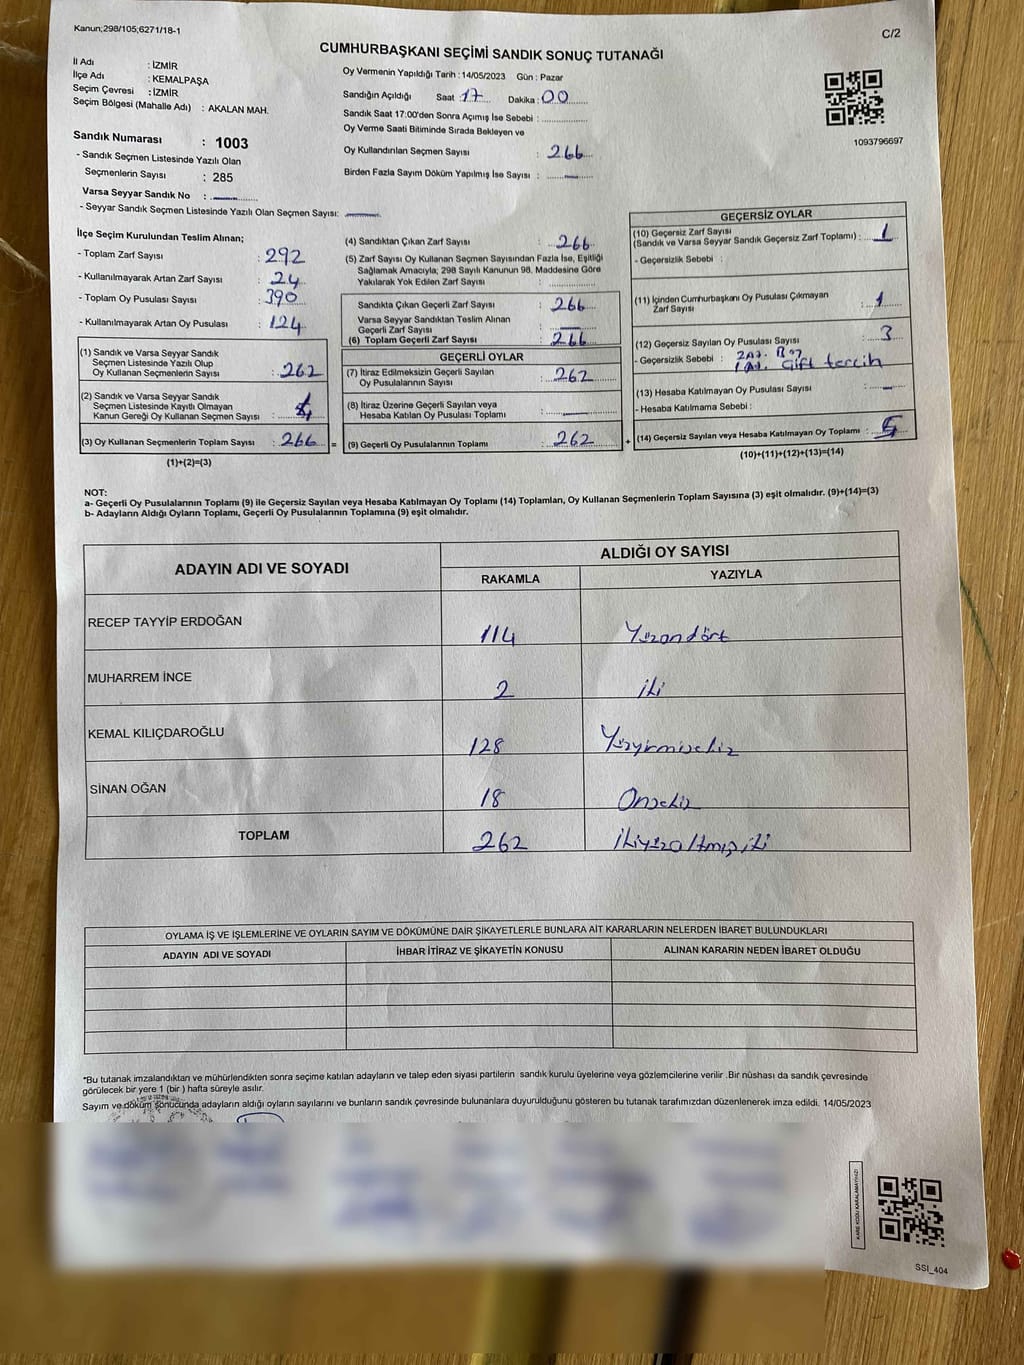 Kanun;298/105;6271/18-1
C/2
CUMHURBAŞKANI SEÇİMİ SANDIK SONUÇ TUTANAĞI
İl Adı : İZMİR
İlçe Adı : KEMALPAŞA
Seçim Çevresi : İZMİR
Seçim Bölgesi (Mahalle Adı) : AKALAN MAH.
Oy Vermenin Yapıldığı Tarih : 14/05/2023 Gün : Pazar
Sandığın Açıldığı Saat : 17 Dakika : 00
Sandık Saat 17:00'den Sonra Açımış İse Sebebi :
Oy Verme Saati Bitiminde Sırada Bekleyen ve
Oy Kullandırılan Seçmen Sayısı : 266
Birden Fazla Sayım Döküm Yapılmış İse Sayısı : —
1093796697
Sandık Numarası : 1003
- Sandık Seçmen Listesinde Yazılı Olan
Seçmenlerin Sayısı : 285
Varsa Seyyar Sandık No : —
- Seyyar Sandık Seçmen Listesinde Yazılı Olan Seçmen Sayısı: —
İlçe Seçim Kurulundan Teslim Alınan;
- Toplam Zarf Sayısı : 292
- Kullanılmayarak Artan Zarf Sayısı : 24
- Toplam Oy Pusulası Sayısı : 390
- Kullanılmayarak Artan Oy Pusulası : 124
(1) Sandık ve Varsa Seyyar Sandık
Seçmen Listesinde Yazılı Olup
Oy Kullanan Seçmenlerin Sayısı : 262
(2) Sandık ve Varsa Seyyar Sandık
Seçmen Listesinde Kayıtlı Olmayan
Kanun Gereği Oy Kullanan Seçmen Sayısı : 4
(3) Oy Kullanan Seçmenlerin Toplam Sayısı : 266 =
(1)+(2)=(3)
(4) Sandıktan Çıkan Zarf Sayısı : 266
(5) Zarf Sayısı Oy Kullanan Seçmen Sayısından Fazla İse, Eşitliği
Sağlamak Amacıyla; 298 Sayılı Kanunun 98. Maddesine Göre
Yakılarak Yok Edilen Zarf Sayısı :
Sandıkta Çıkan Geçerli Zarf Sayısı : 266
Varsa Seyyar Sandıktan Teslim Alınan
Geçerli Zarf Sayısı : —
(6) Toplam Geçerli Zarf Sayısı : 266
GEÇERLİ OYLAR
(7) İtiraz Edilmeksizin Geçerli Sayılan
Oy Pusulalarının Sayısı : 262
(8) İtiraz Üzerine Geçerli Sayılan veya
Hesaba Katılan Oy Pusulası Toplamı : —
(9) Geçerli Oy Pusulalarının Toplamı : 262 +
GEÇERSİZ OYLAR
(10) Geçersiz Zarf Sayısı
(Sandık ve Varsa Seyyar Sandık Geçersiz Zarf Toplamı) : 1
- Geçersizlik Sebebi :
(11) İçinden Cumhurbaşkanı Oy Pusulası Çıkmayan
Zarf Sayısı : 1
(12) Geçersiz Sayılan Oy Pusulası Sayısı : 3
- Geçersizlik Sebebi : 2Ad. Boş
1Ad. Çift tercih
(13) Hesaba Katılmayan Oy Pusulası Sayısı : —
- Hesaba Katılmama Sebebi :
(14) Geçersiz Sayılan veya Hesaba Katılmayan Oy Toplamı :
(10)+(11)+(12)+(13)=(14)
NOT:
a- Geçerli Oy Pusulalarının Toplamı (9) ile Geçersiz Sayılan veya Hesaba Katılmayan Oy Toplamı (14) Toplamları, Oy Kullanan Seçmenlerin Toplam Sayısına (3) eşit olmalıdır. (9)+(14)=(3)
b- Adayların Aldığı Oyların Toplamı, Geçerli Oy Pusulalarının Toplamına (9) eşit olmalıdır.
ADAYIN ADI VE SOYADI ALDIĞI OY SAYISI
RAKAMLA YAZIYLA
RECEP TAYYİP ERDOĞAN 114 Yüzondört
MUHARREM İNCE 2 iki
KEMAL KILIÇDAROĞLU 128 Yüzyirmisekiz
SİNAN OĞAN 18 Onsekiz
TOPLAM 262 ikiyüzaltmışiki
OYLAMA İŞ VE İŞLEMLERİNE VE OYLARIN SAYIM VE DÖKÜMÜNE DAİR ŞİKAYETLERLE BUNLARA AİT KARARLARIN NELERDEN İBARET BULUNDUKLARI
ADAYIN ADI VE SOYADI İHBAR İTİRAZ VE ŞİKAYETİN KONUSU ALINAN KARARIN NEDEN İBARET OLDUĞU
*Bu tutanak imzalandıktan ve mühürlendikten sonra seçime katılan adayların ve talep eden siyasi partilerin sandık kurulu üyelerine veya gözlemcilerine verilir .Bir nüshası da sandık çevresinde
görülecek bir yere 1 (bir ) hafta süreyle asılır.
Sayım ve döküm sonucunda adayların aldığı oyların sayılarını ve bunların sandık çevresinde bulunanlara duyurulduğunu gösteren bu tutanak tarafımızdan düzenlenerek imza edildi. 14/05/2023
KARE KODU KARALAMAYINIZ!
SSI_404